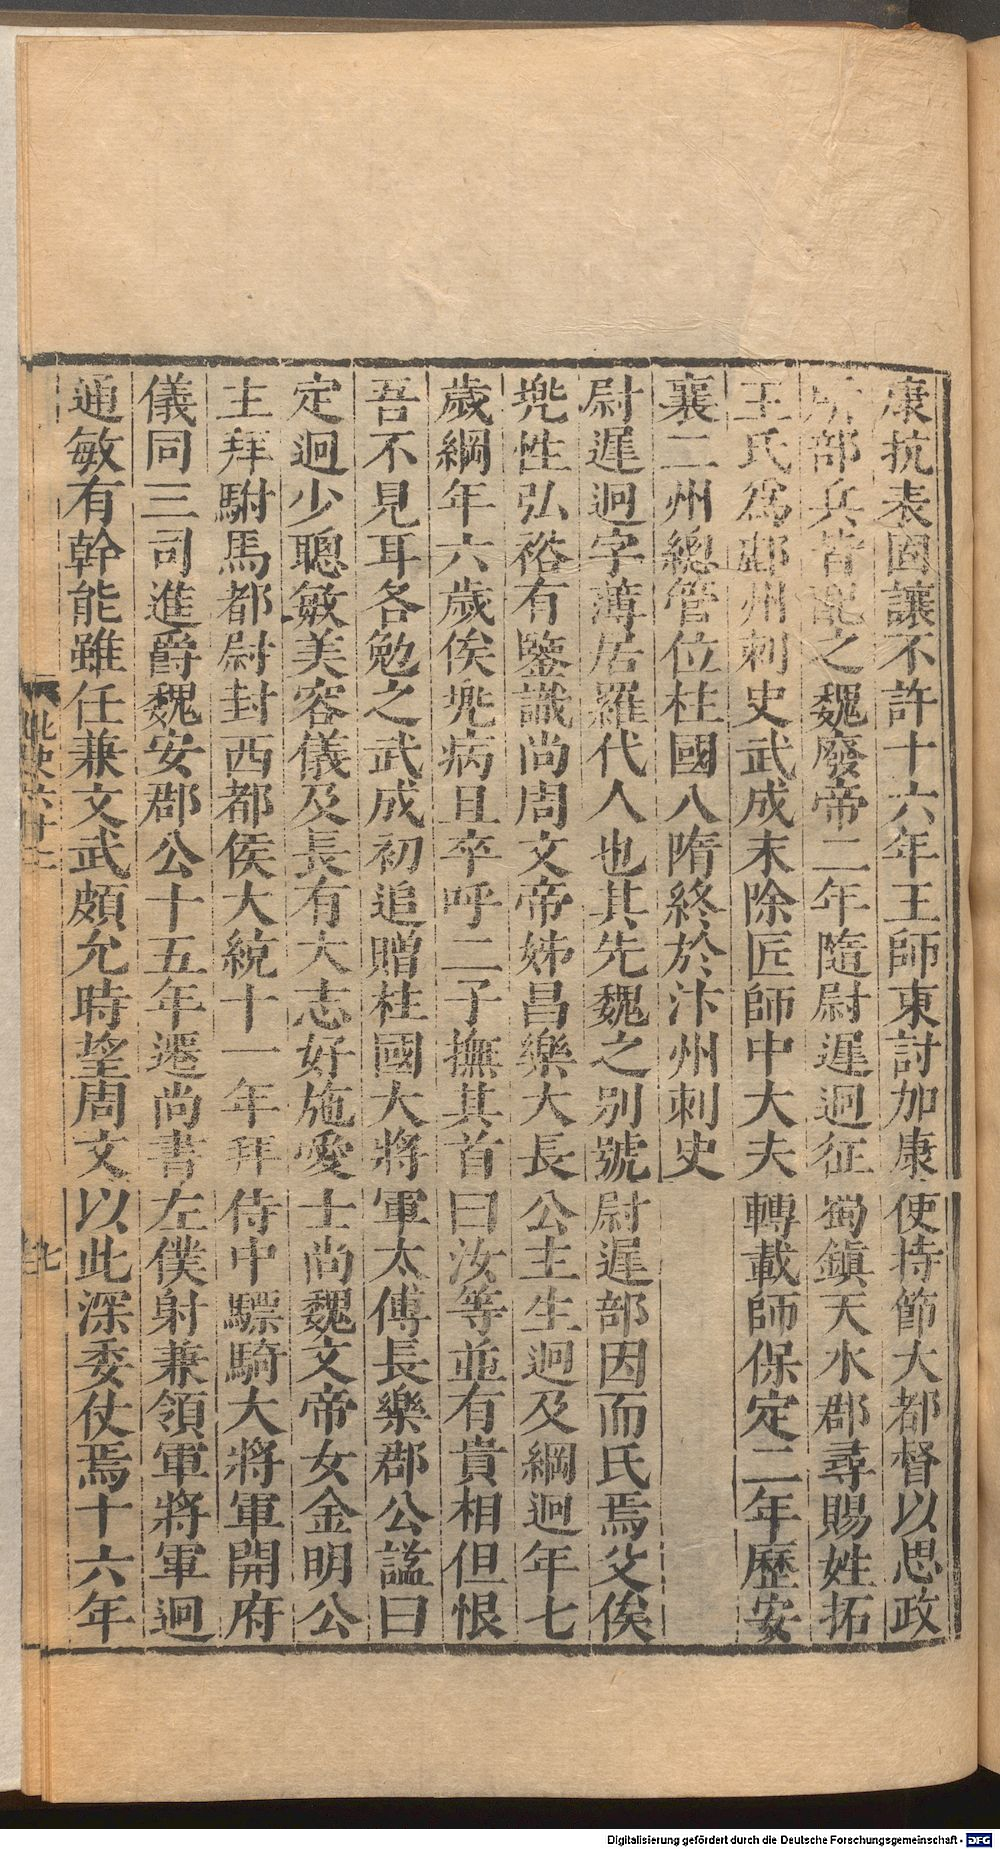 康抗表固讓不許十六年王師東討加康使持節大都督以思政
所部兵皆配之魏廢帝二年隨尉遲迥征蜀鎮天水郡尋賜姓拓
王氏為鄜州刺史武成末除匠師中大夫轉載師保定二年歷安
襄二州總管位柱國入隋終於汴州刺史
尉遲迥字薄居羅代人也其先魏之別號尉遲部因而氏焉父俟
兠性弘裕有鑒識尚周文帝姊昌樂大長公主生迥及綱迥年七
歲綱年六歲俟兠病且卒呼二子撫其首曰汝等並有貴相但恨
吾不見耳各勉之武成初追贈柱國大將軍太傅長樂郡公謚曰
定迥少聰敏美容儀及長有大志好施愛士尚魏文帝女金明公
主拜駙馬都尉封西都侯大統十一年拜侍中驃騎大將軍開府
儀同三司進爵魏安郡公十五年遷尚書左僕射兼領軍將軍迥
通敏有幹能雖任兼文武頗允時望周文以此深委仗焉十六年
北史六十二
Digitalisierung gefördert durch die Deutsche Forschungsgemeinschaft - DFG